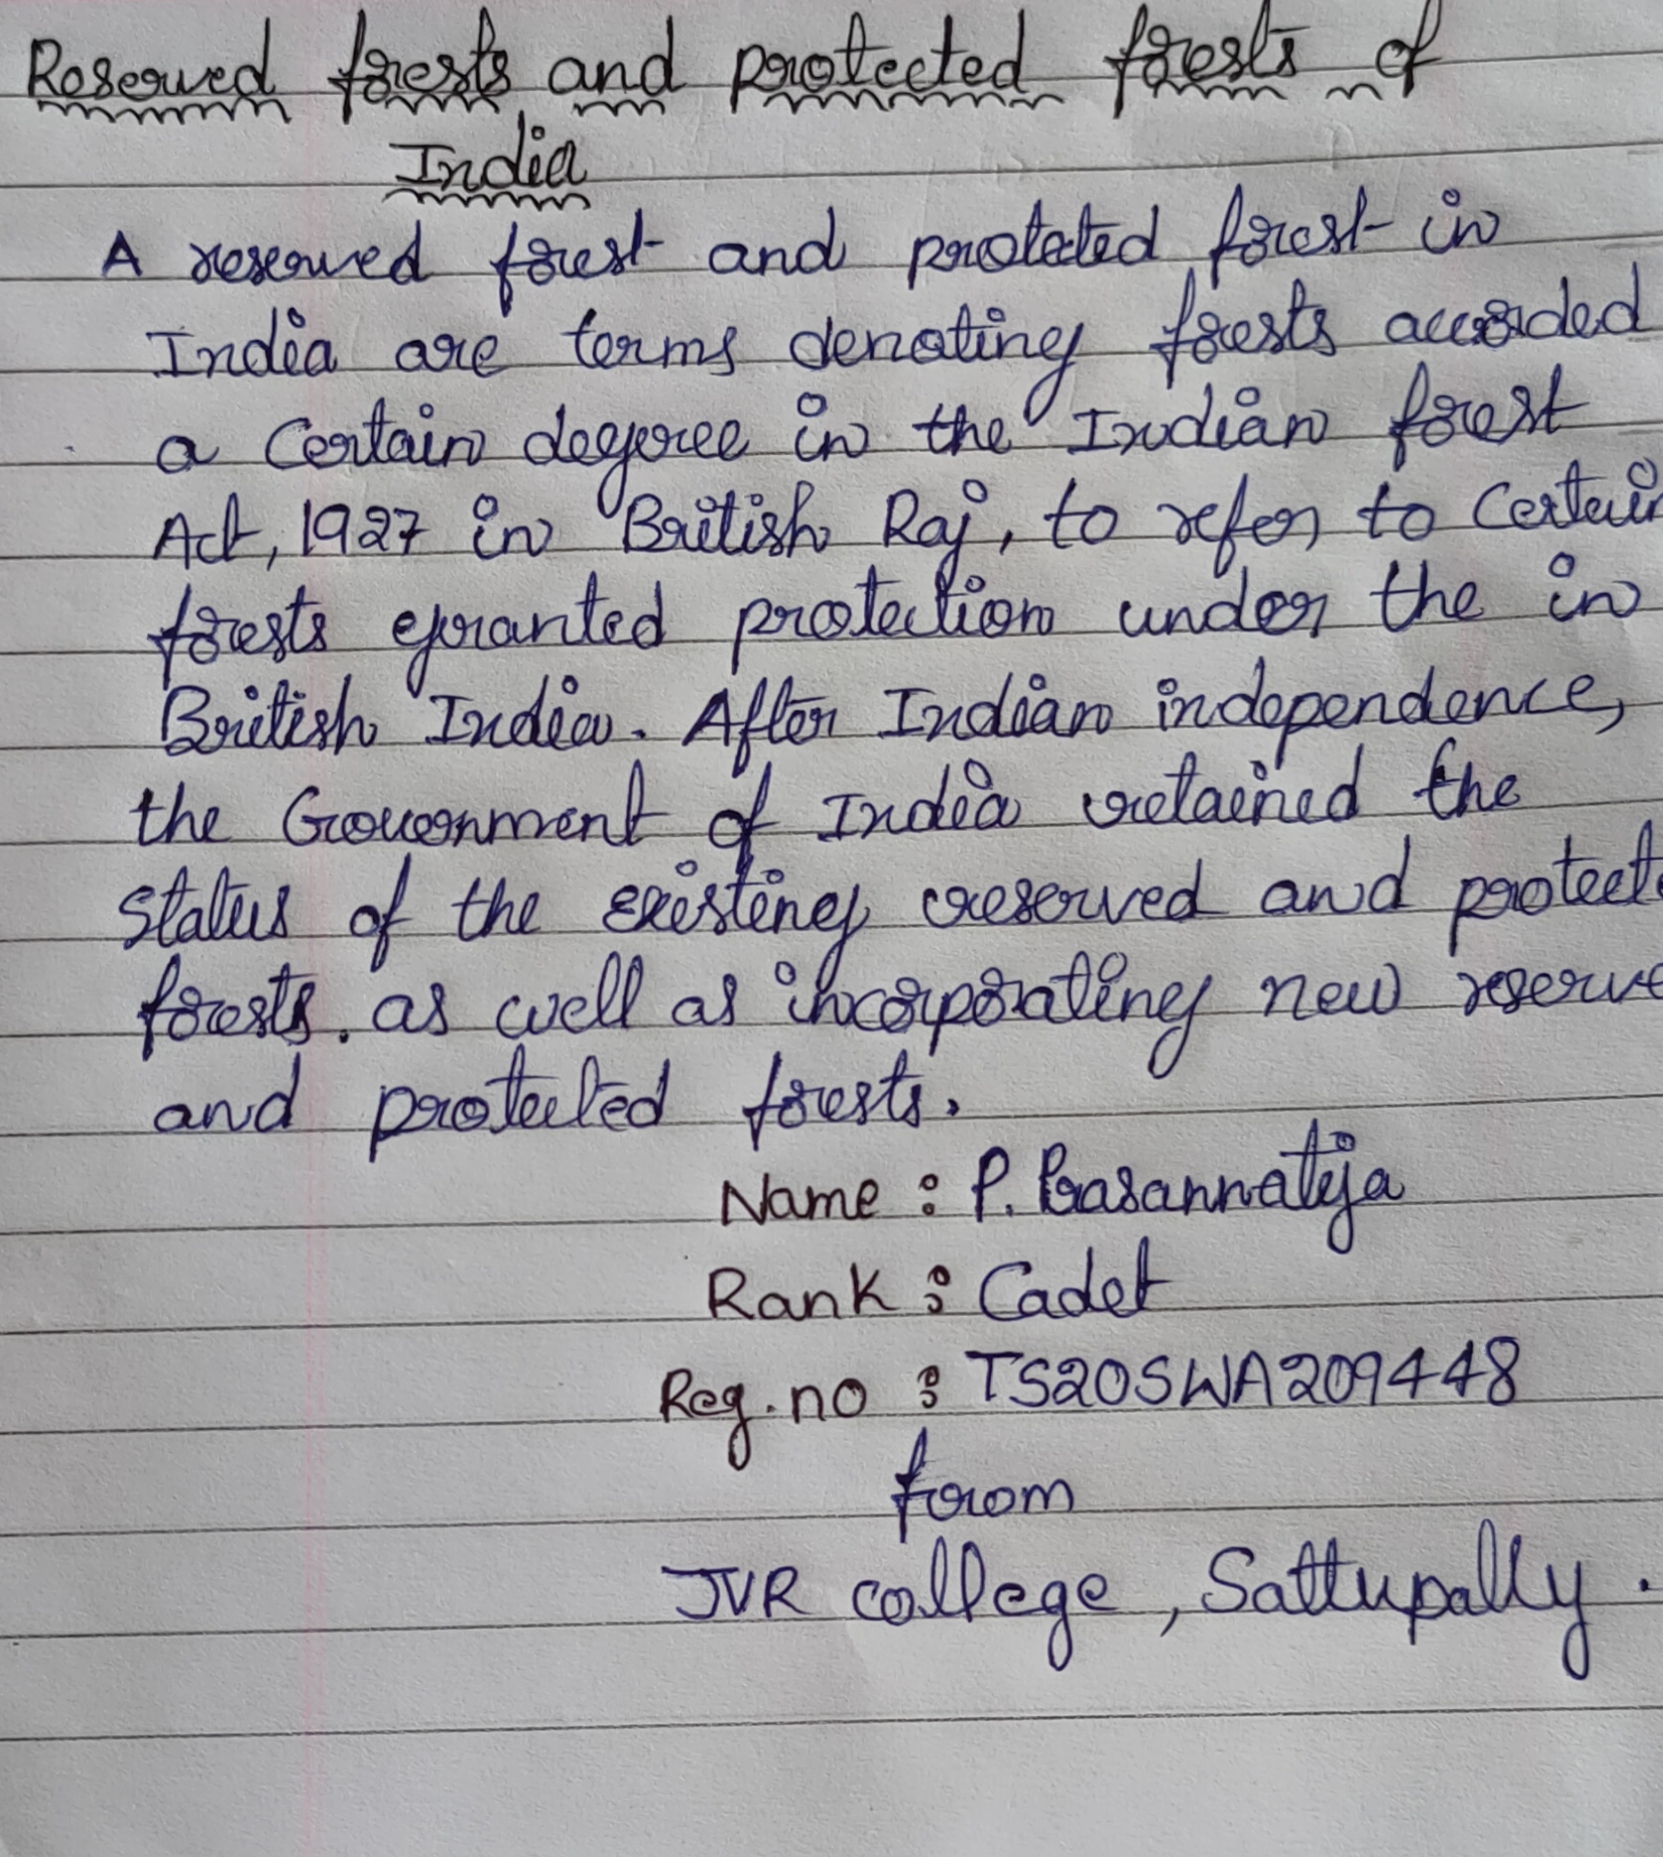 Reserved forests and protected forests of
India
A reserved forest and protected forest in
India are terms denoting forests accorded
a Certain degree in the Indian forest
Act, 1927 in British Raj, to refer to Certain
forests granted protection under the in
British India. After Indian independence,
the Government of India retained the
status of the existing reserved and protecte
forests. as well as incorporating new reserve
and protected forests.
Name : P. Prasannateja
Rank : Cadet
Reg.no : TS20SWA209448
from
JVR college, Sattupally.